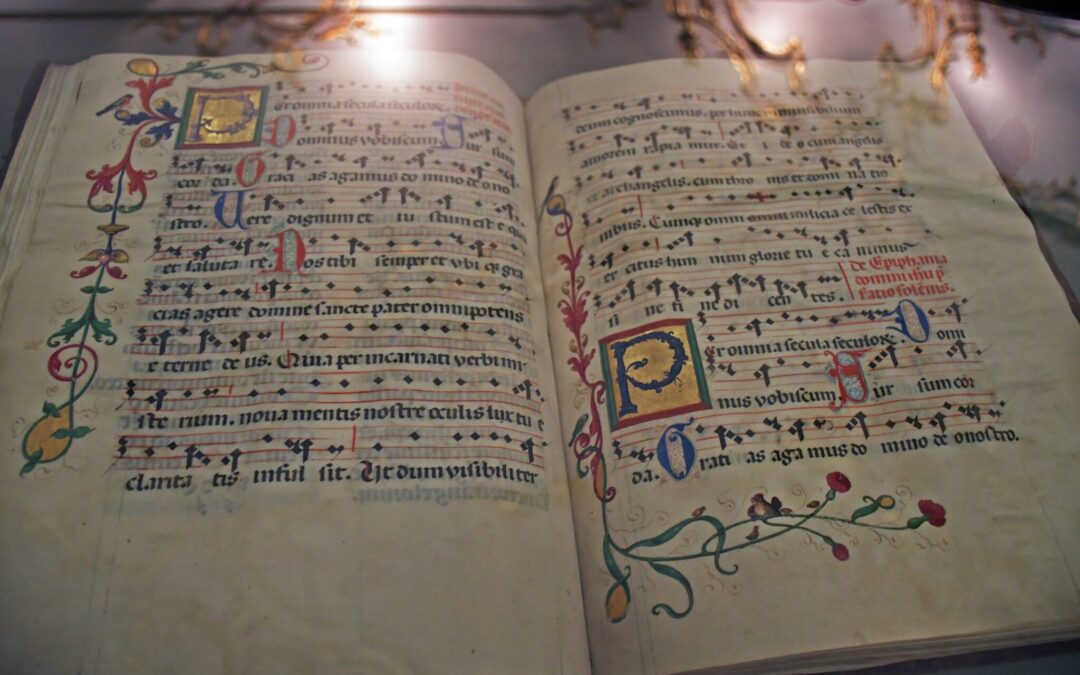 Per omnia secula seculorz.
Dominus vobiscum. Sur sum
cor da. Grati as agamus do mino de o no
stro. Uere dignum et iu stum est e
et saluta re. Nos tibi semper et vbi qz gra
cias agere domine sancte pater omnipotens
e terne de us. Quia per incarnati verbi mi
ste rium. noua mentis nostre oculis lux tu e
clarita tis inful sit. Ut dum visibiliter
deum cognoscimus. per hunc in inuisibilium
amorem rapia mur. Et i de o cum angelis
et archangelis. cum thro nis et domi na tio
nibus. Cumqz omni militia ce lestis ex
er citus him num glorie tu e ca nimus
si ne fi ne di cen tes.
de Epiphania
domini
fatio solenis.
Per omnia secula seculorz. Domi
nus vobiscum. Sur sum cor
da. Grati as aga mus do mino de o nostro.